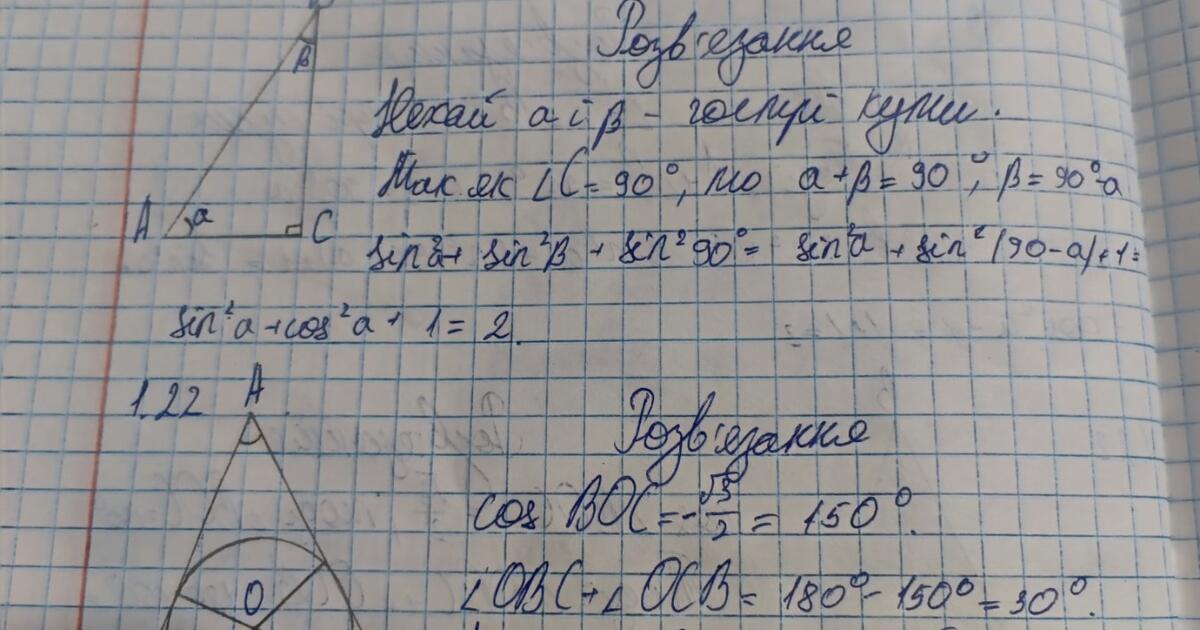 β
Розв'язання
Нехай a і β - гострі кути.
Так як ∠C = 90°, то a + β = 90°, β = 90°-a
A a C
sin²a + sin²β + sin² 90° = sin²a + sin²(90-a)+1=
sin²a + cos²a + 1 = 2.
1.22 A
Розв'язання
cos BOC = -√3/2 = 150°.
O
∠OBC + ∠OCB = 180° - 150° = 30°.